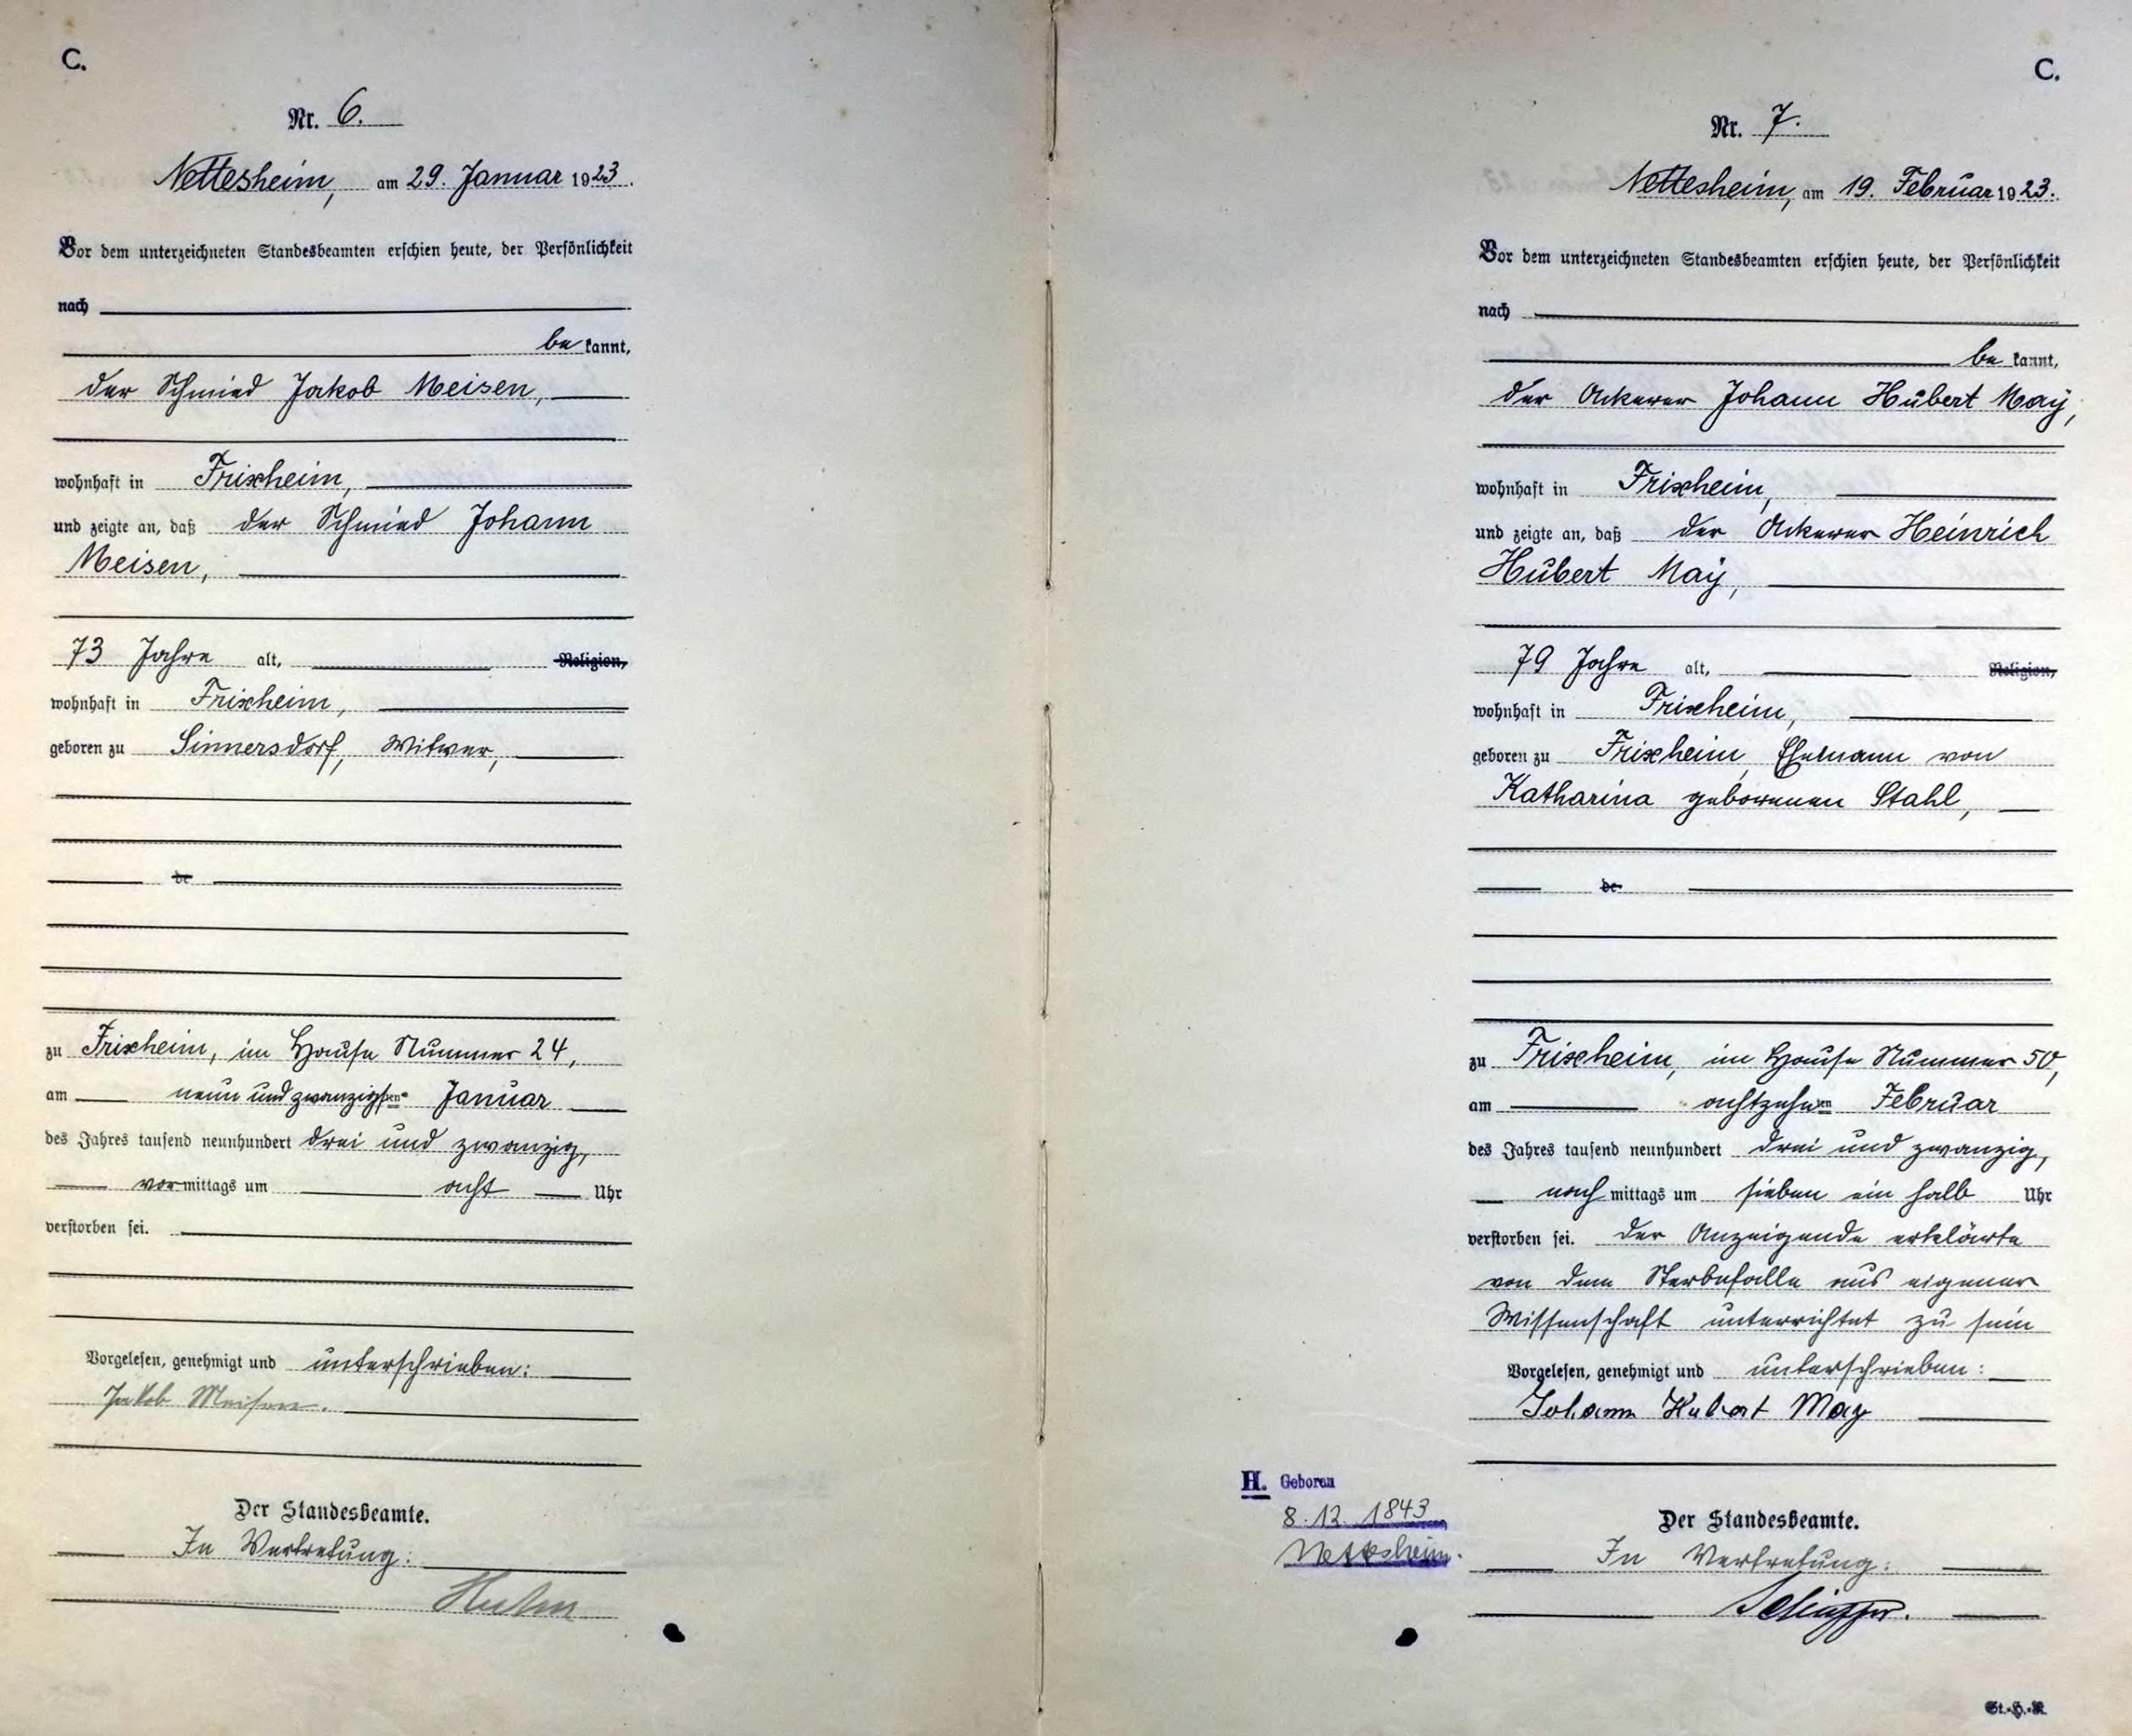 C.
Nr. 6.
Nettesheim, am 29. Januar 1923.
Vor dem unterzeichneten Standesbeamten erschien heute, der Persönlichkeit
nach
be kannt,
der Schmied Jakob Meisen,
wohnhaft in Frixheim,
und zeigte an, daß der Schmied Johann
Meisen,
73 Jahre alt, Religion,
wohnhaft in Frixheim,
geboren zu Sinnersdorf, Witwer,
de
zu Frixheim, im Hause Nummer 24,
am neun und zwanzigsten Januar
des Jahres tausend neunhundert drei und zwanzig,
vormittags um acht Uhr
verstorben sei.
Vorgelesen, genehmigt und unterschrieben:
Jakob Meisen.
Der Standesbeamte.
In Vertretung:
C.
Nr. 7.
Nettesheim, am 19. Februar 1923.
Vor dem unterzeichneten Standesbeamten erschien heute, der Persönlichkeit
nach
be kannt,
der Ackerer Johann Hubert May,
wohnhaft in Frixheim,
und zeigte an, daß der Ackerer Heinrich
Hubert May,
79 Jahre alt, Religion,
wohnhaft in Frixheim,
geboren zu Frixheim, Ehemann von
Katharina geborenen Stahl,
de
zu Frixheim, im Hause Nummer 50,
am achtzehnten Februar
des Jahres tausend neunhundert drei und zwanzig,
nachmittags um sieben ein halb Uhr
verstorben sei. Der Anzeigende erklärte
von dem Sterbefalle aus eigener
Wissenschaft unterrichtet zu sein
Vorgelesen, genehmigt und unterschrieben:
Johann Hubert May
H. Geboren
8.12.1843
Nettesheim.
Der Standesbeamte.
In Vertretung:
St.-H.-R.